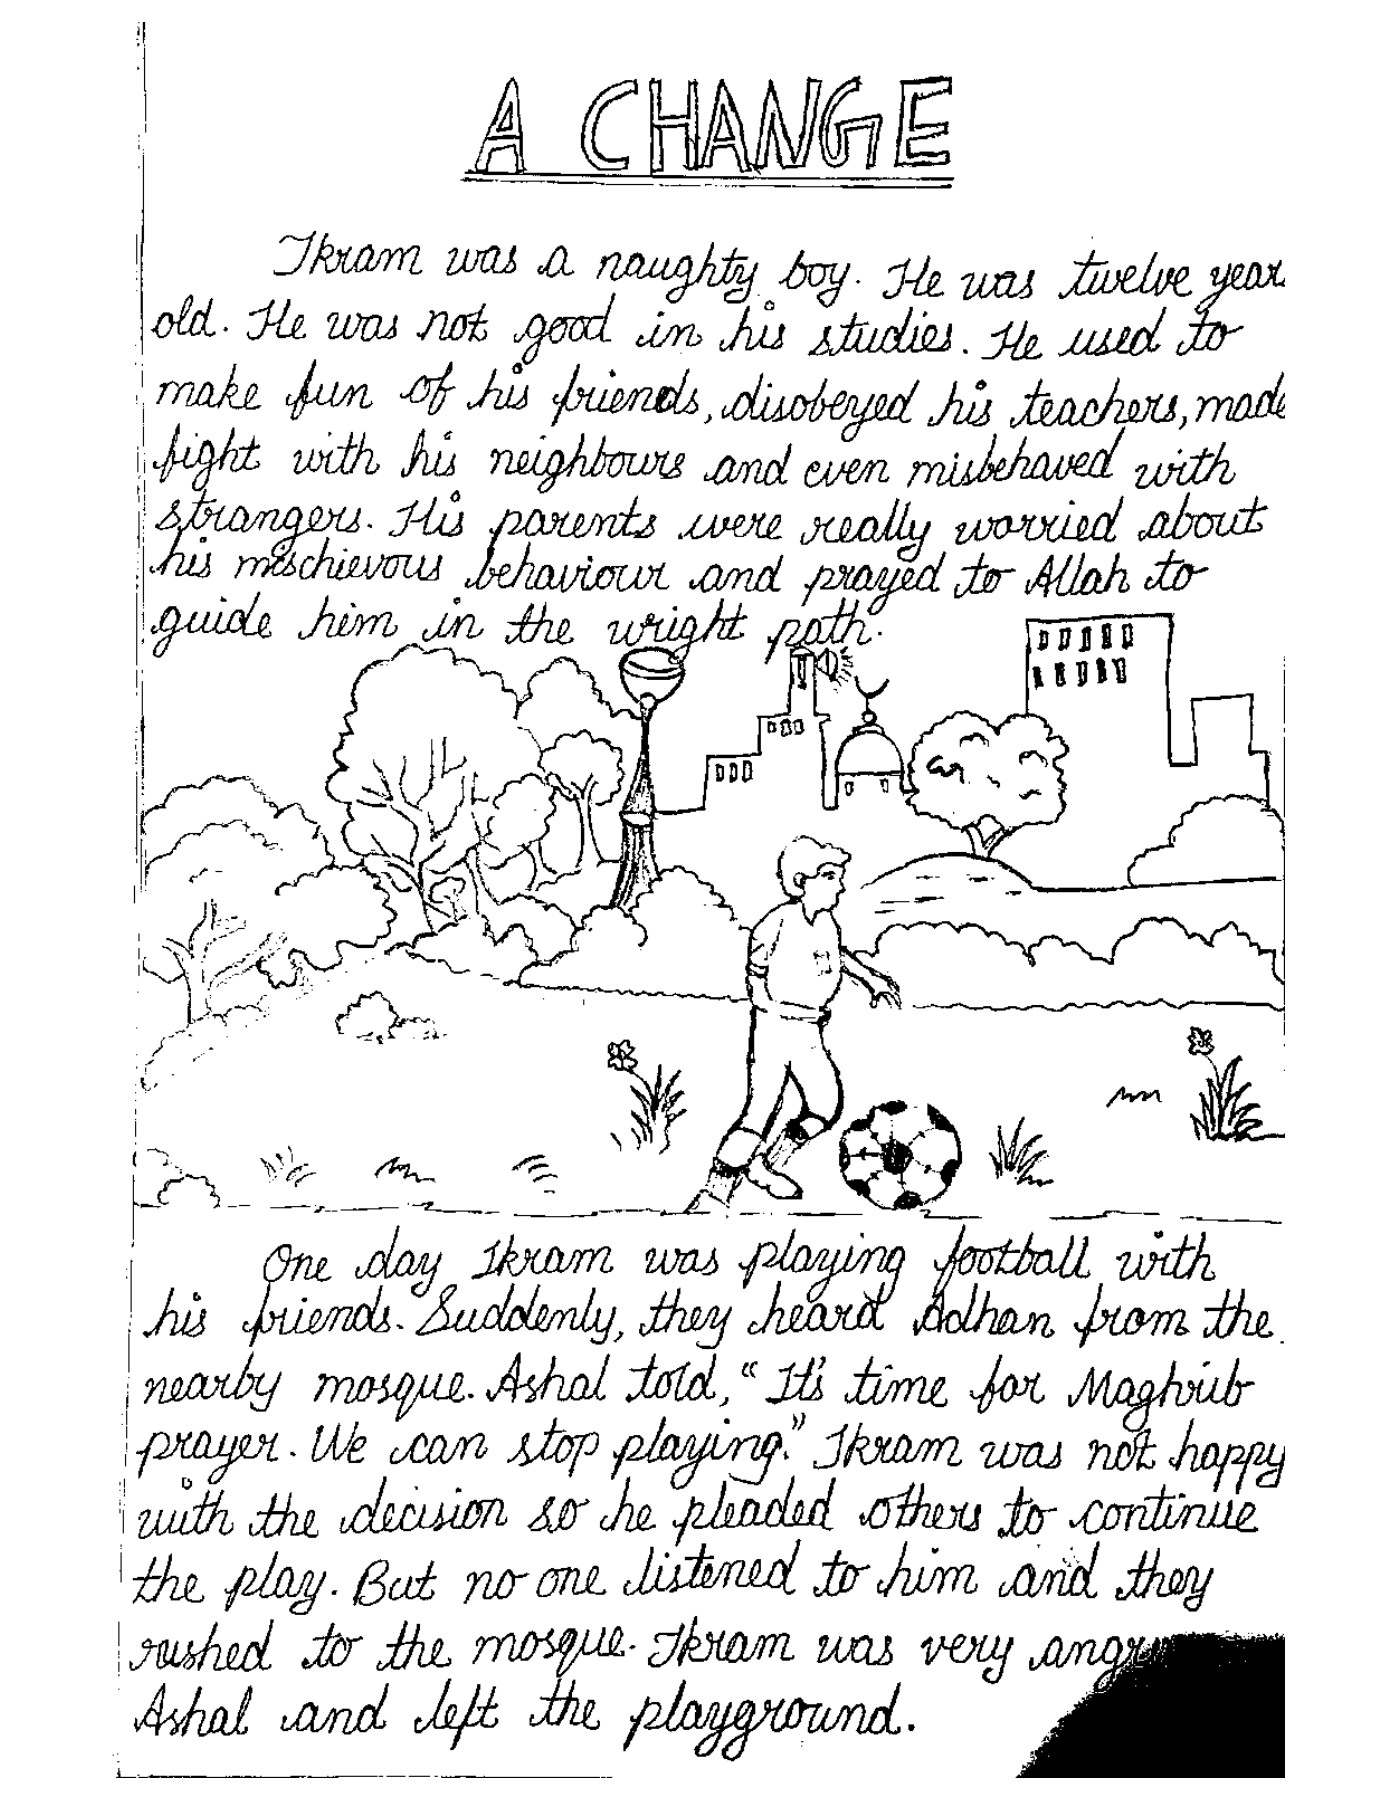 A CHANGE
Ikram was a naughty boy. He was twelve year
old. He was not good in his studies. He used to
make fun of his friends, disobeyed his teachers, made
fight with his neighbours and even misbehaved with
strangers. His parents were really worried about
his mischievous behaviour and prayed to Allah to
guide him in the wright path.
One day Ikram was playing football with
his friends. Suddenly, they heard Adhan from the
nearby mosque. Ashal told, "It's time for Maghrib
prayer. We can stop playing." Ikram was not happy
with the decision so he pleaded others to continue
the play. But no one listened to him and they
rushed to the mosque. Ikram was very angry
Ashal and left the playground.